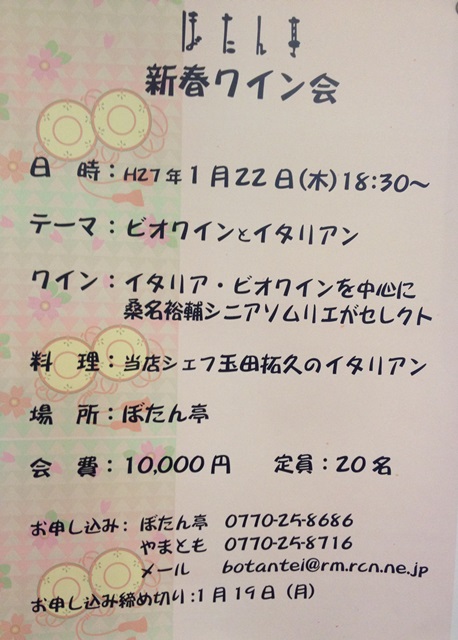 ぼたん亭
新春ワイン会
日 時：H27年1月22日(木)18:30〜
テーマ：ビオワインとイタリアン
ワイン：イタリア・ビオワインを中心に
桑名裕輔シニアソムリエがセレクト
料 理：当店シェフ玉田拓久のイタリアン
場 所：ぼたん亭
会 費：10,000円 定員：20名
お申し込み：ぼたん亭 0770-25-8686
やまとも 0770-25-8716
メール botantei@rm.rcn.ne.jp
お申し込み締め切り：1月19日（月）